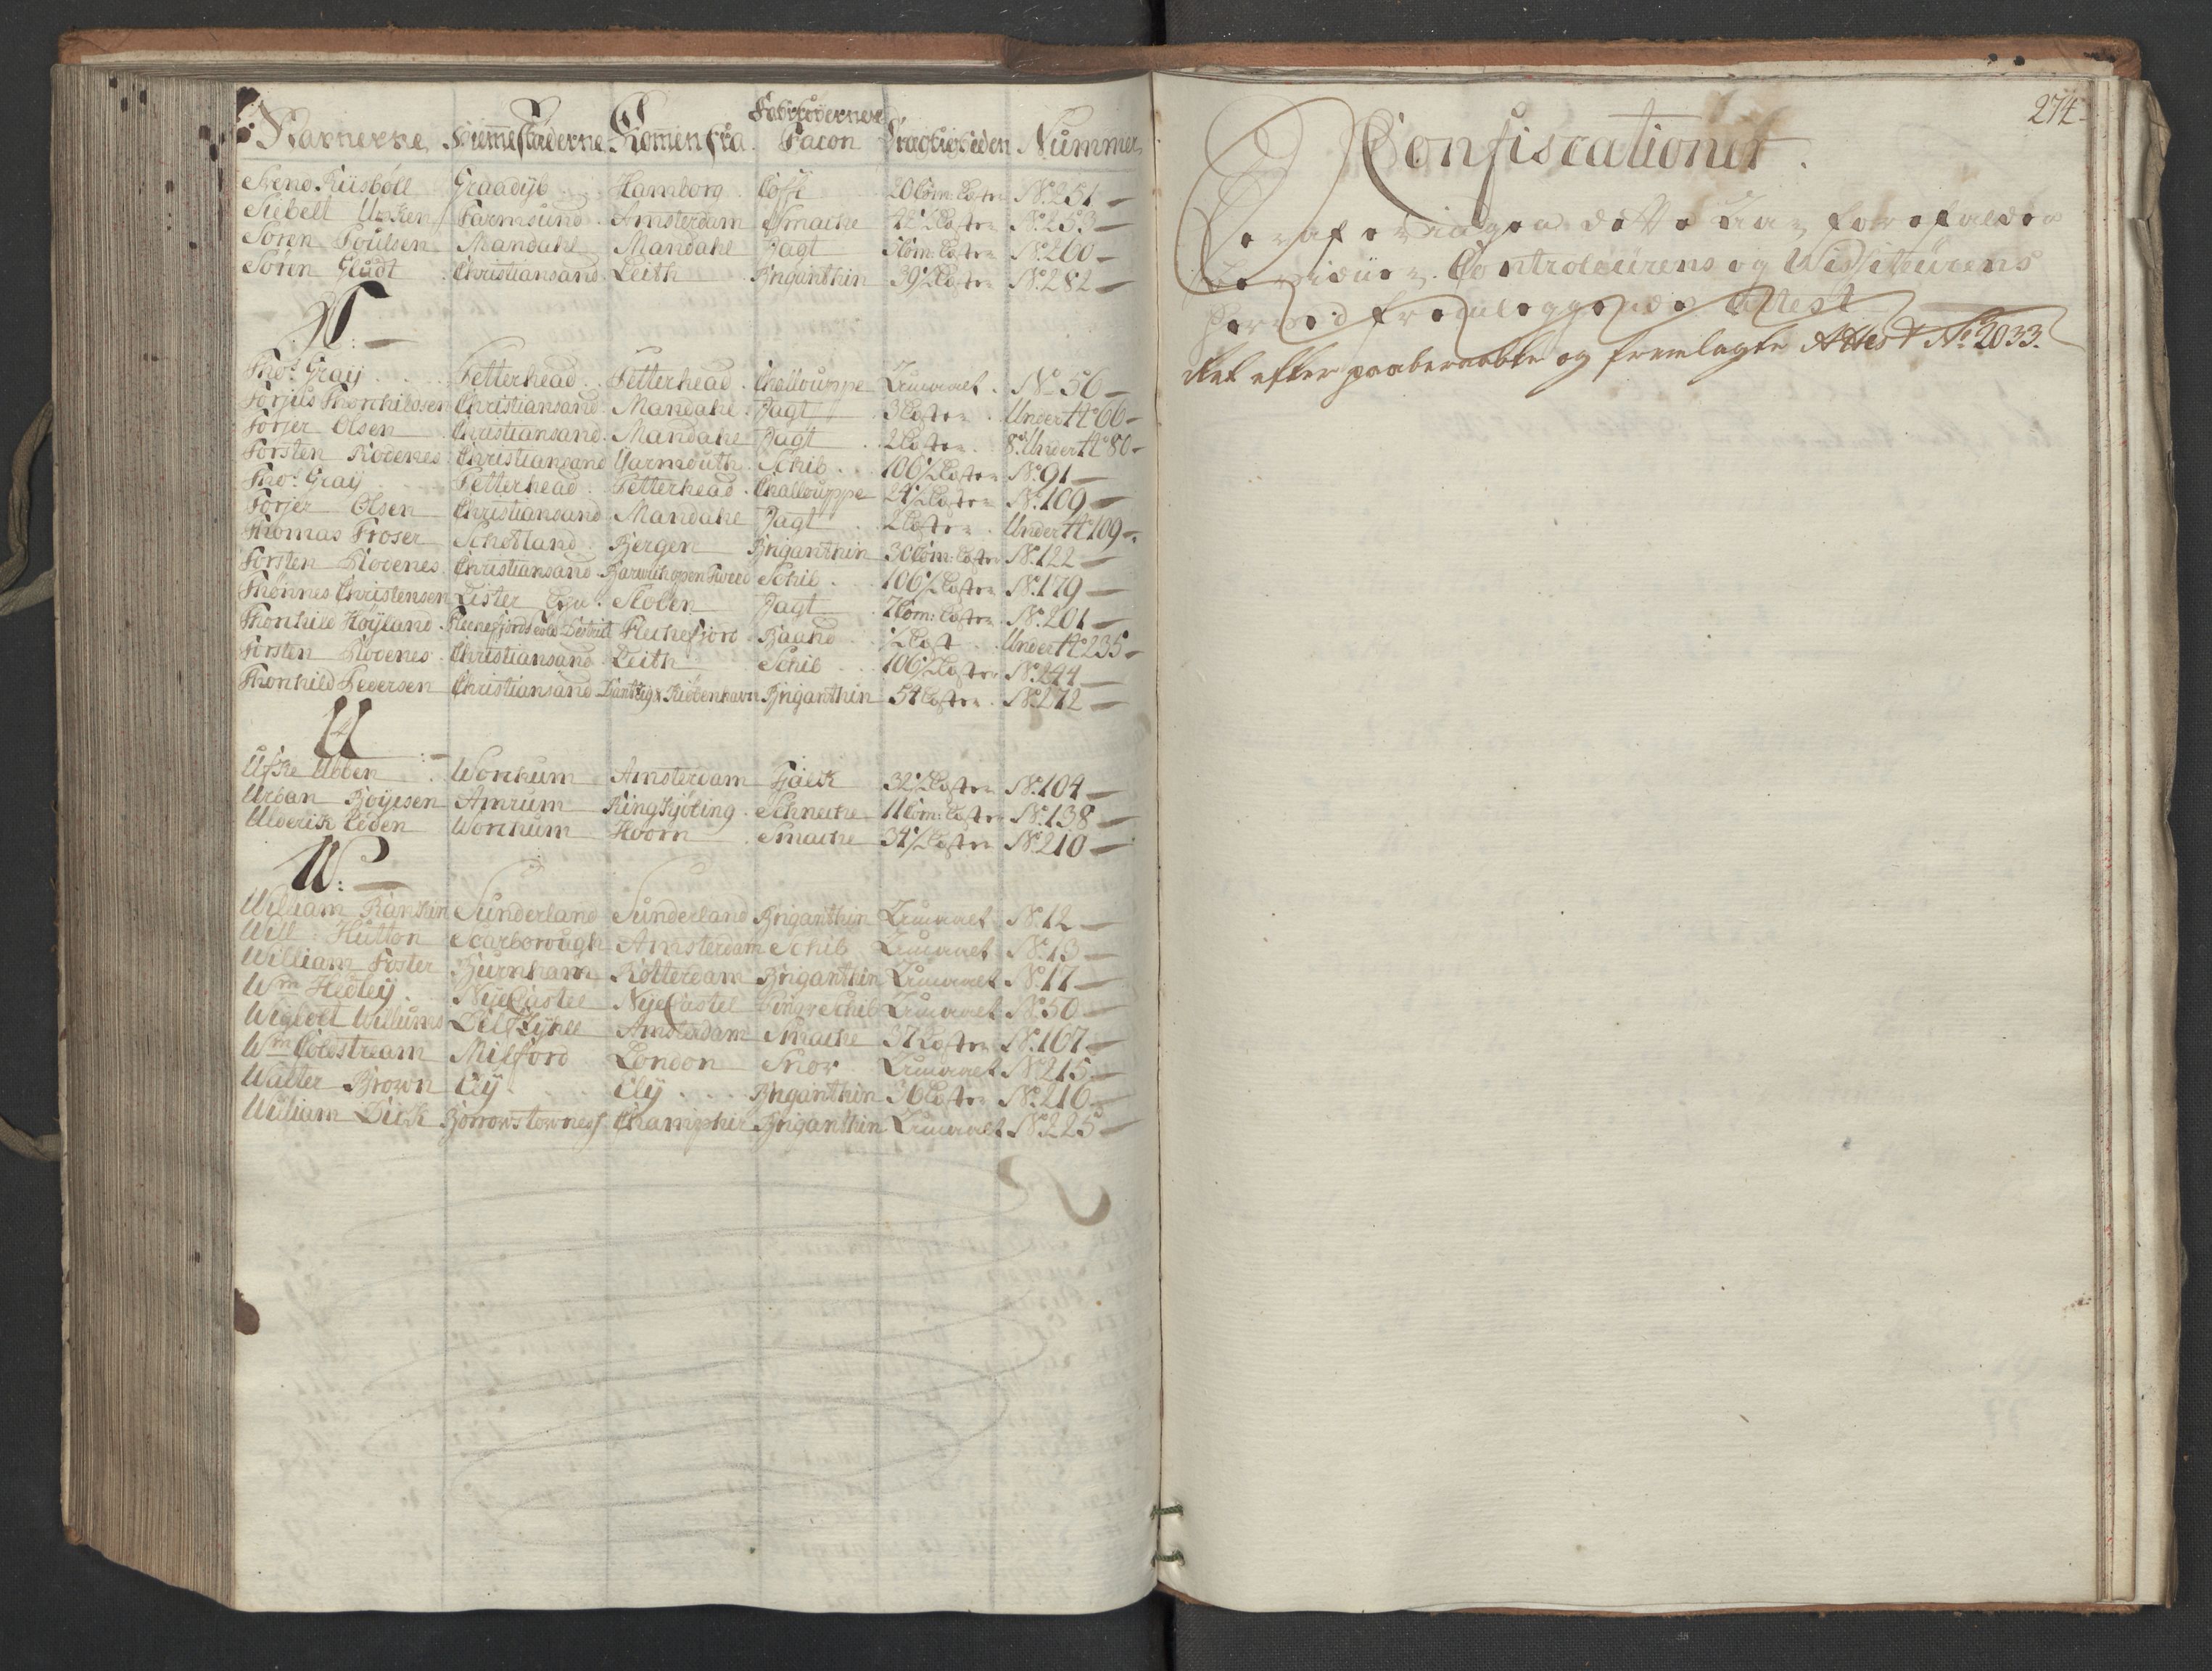 Navnerne Hiemmestæderne Kommen fra Fahrtøyernes Facon Drægtigheden Nummer
Svend Riisbøll Graadÿb Hamborg Coffe 20 Com: Læster No. 251
Siebelt Farmsund Amsterdam Smacke 42½ Læster No. 253
Søren Poulsen Mandahl Mandahl Jagt Com: Læster No. 260
Søren Gludt Christiansand Leith Briganthin 39½ Læster No. 282
T:
Tho.s Graÿ Petterhead Petterhead Challouppe Umaalt No. 56
Torjus Thorchildsen Christiansand Mandahl Jagt 3 Læster Under No. 66
Torjer Olsen Christiansand Mandahl Jagt 2 Læster Under No. 80
Torsten Rodenes Christiansand Yarmouth Schib 106½ Læster No. 91
Tho.s Graÿ Petterhead Petterhead Challouppe 24½ Læster No. 109
Torjer Olsen Christiansand Mandahl Jagt 2 Læster Under No. 109
Thomas Froser Schotland Bergen Briganthin 30 Com: Læster No. 122
Torsten Rodenes Christiansand Barwich open Tweed Schib 106½ Læster No. 179
Thønnes Christensen Lister Jagt 7 Com: Læster No. 201
Thorkild Høyland Fleckefjords Told District Fleckefjord Baand ½ Læst Under No. 235
Torsten Rodenes Christiansand Leith Schib 106½ Læster No. 244
Thorkild Pedersen Christiansand Dantzig & Kiøbenhavn Briganthin 54 Læster No. 272
U:
Ufke Ubben Worckum Amsterdam Tjalck 32½ Læster No. 104
Urban Boÿesen Amrum Ringkjøbing Schnecke 11 Com: Læster No. 138
Ulderik Worckum Hoorn Smacke 34½ Læster No. 210
W:
William Rankin Sunderland Sunderland Briganthin Umaalt No. 12
Will: Hutton Scarborough Amsterdam Schib Umaalt No. 13
William Foster Burnham Rotterdam Briganthin Umaalt No. 17
Wm Hedleÿ NyeCastel NyeCastel Schib Umaalt No. 50
Willums Delfzÿhll Amsterdam Smacke 37 Læster No. 167
Wm Coldstream Milford London Snov Umaalt No. 215
Walter Brown Elÿ Elÿ Briganthin 76 Læster No. 216
William Dick Borrowstowness Champhir Briganthin Umaalt No. 225
274
Confiscationer.
Heraf er ingen dette Aar forefalden
Controleurens og Wisiteurens
herved fremleggende Attest
det efter paaberaabte og fremlagte Attest No. 2033.